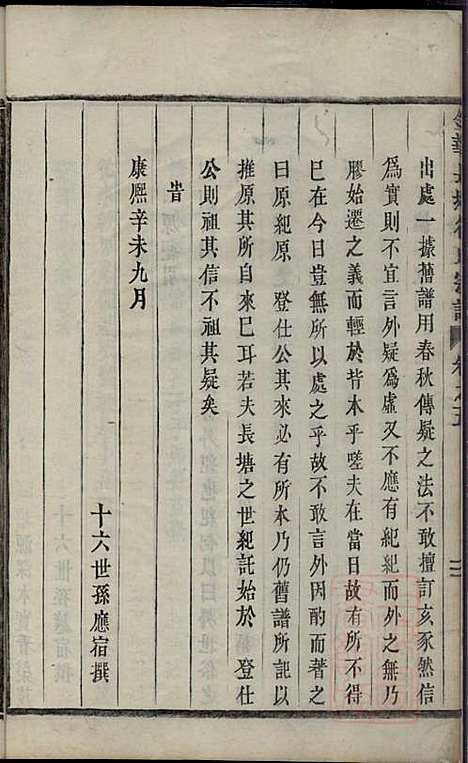 出處一據舊譜用春秋傳疑之法不敢擅訂亥豕然信
爲實則不宜言外疑爲虛又不應有紀紀而外之無乃
膠始遷之義而輕於背本乎嗟夫在當日故有所不得
已在今日豈無所以處之乎故不敢言外因酌而著之
曰原紀原　登仕公其來必有所本乃仍舊譜所記以
推原其所自來已耳若夫長塘之世紀託始於　登仕
公則祖其信不祖其疑矣
旹
康熙辛未九月
十六世孫應宿撰